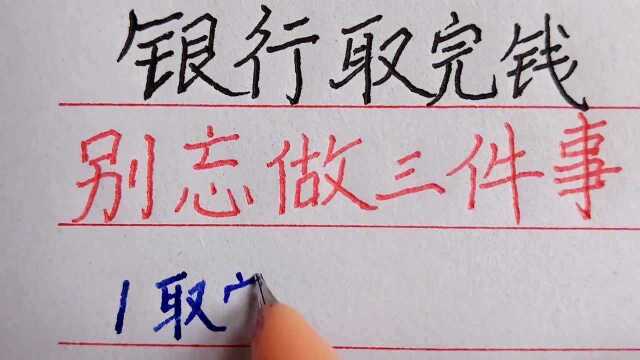 银行取完钱
别忘做三件事
1取